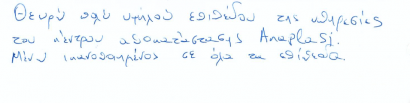 Θεωρώ πολύ υψηλού επιπέδου της υπηρεσίες
του κέντρου αποκατάστασης Anaplasi.
Μένω ικανοποιημένος σε όλα τα επίπεδα.